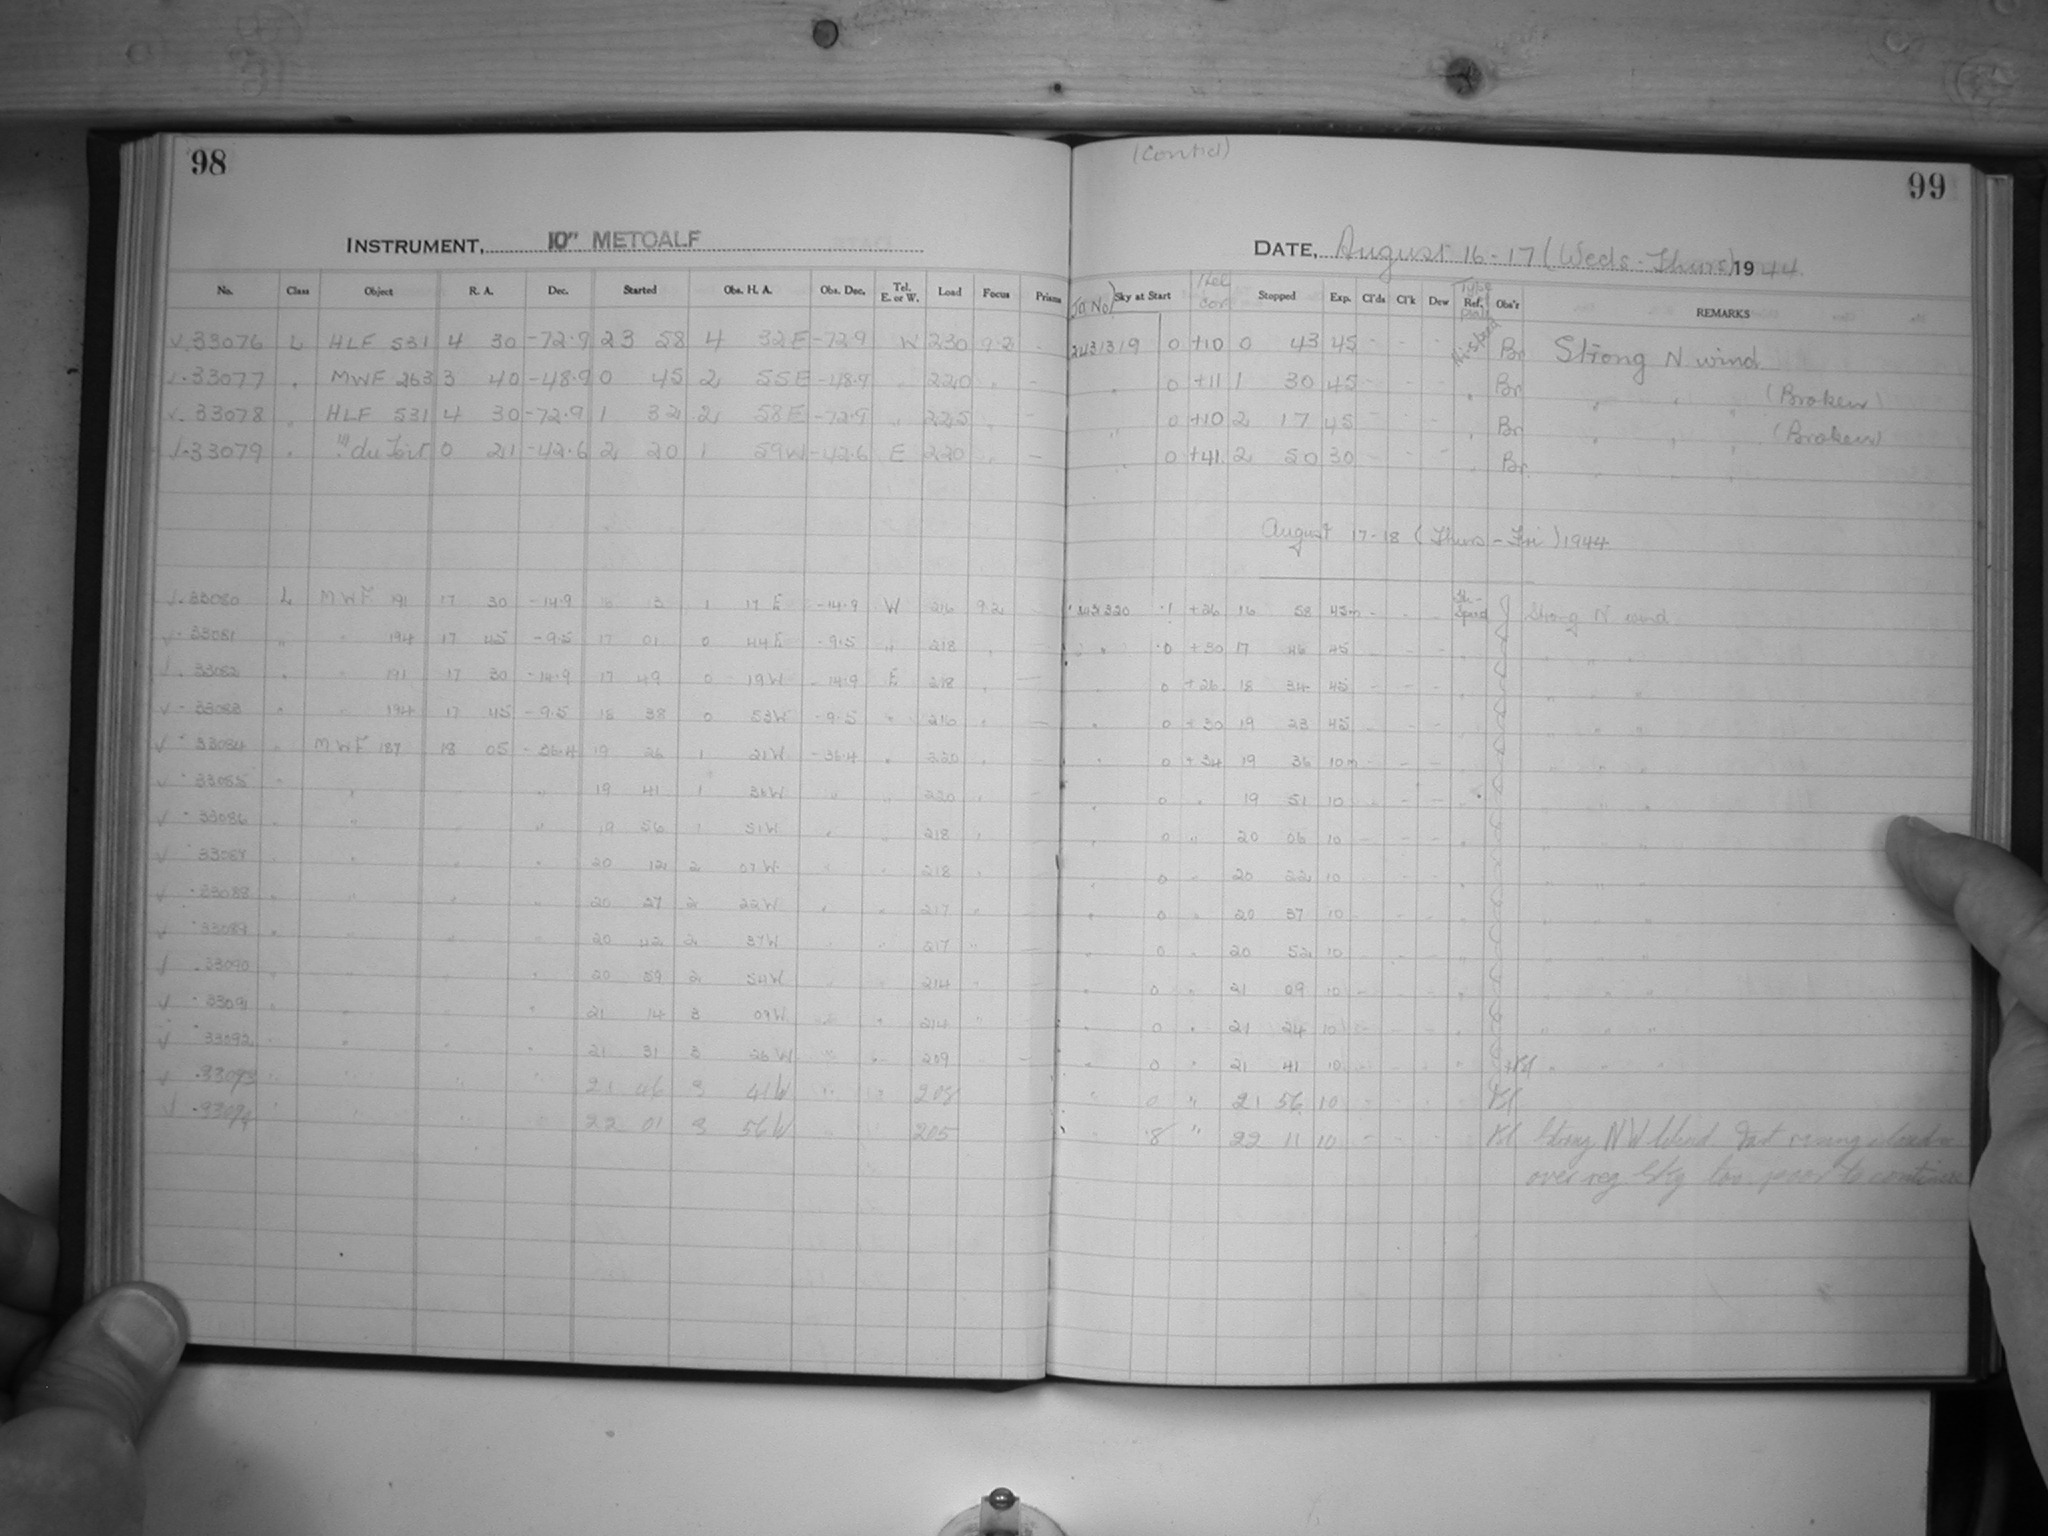 98
INSTRUMENT, 10" METCALF
No. Class Object R. A. Dec. Started Obs. H. A. Obs. Dec. Tel. E. or W. Load Focus Prisms
√. 33076 L HLF 531 4 30 -72.9 23 58 4 32E -72.9 W 230 9.2 -
√. 33077 " MWF 263 3 40 -48.9 0 45 2 55E -48.9 " 220 " -
√. 33078 " HLF 531 4 30 -72.9 1 32 2 58E -72.9 " 225 " -
√. 33079 " du Toit 0 21 -42.6 2 20 1 59W -42.6 E 220 " -
√. 33080 L MWF 191 17 30 -14.9 16 13 1 17E -14.9 W 216 9.2
√. 33081 " " 194 17 45 -9.5 17 01 0 44E -9.5 " 218 "
√. 33082 " " 191 17 30 -14.9 17 49 0 19W -14.9 E 218 " -
√. 33083 " " 194 17 45 -9.5 18 38 0 53W -9.5 " 216 " -
√. 33084 " MWF 187 18 05 -36.4 19 26 1 21W -36.4 " 220 " -
√. 33085 " " " " 19 41 1 36W " " 220 " -
√. 33086 " " " " 19 56 1 51W " " 218 "
√. 33087 " " " 20 12 2 07W " " 218 "
√. 33088 " " " " 20 27 2 22W " " 217 " -
√. 33089 " " " " 20 42 2 37W " " 217 " -
√. 33090 " " " " 20 59 2 54W " " 214 " -
√. 33091 " " " " 21 14 3 09W " " 214 " -
√. 33092 " " " " 21 31 3 26W " " 209 - -
√. 33093 " " " 21 46 3 41W " " 208
√. 33094 " " " 22 01 3 56W " 205
(Contd)
99
DATE, August 16-17 (Weds-Thurs) 1944
J.D. No. Sky at Start Stopped Exp. Cl'ds Cl'k Dew Ref. Obs'r REMARKS
2431319 0 +10 0 43 45 - - - Br Strong N wind
" 0 +11 1 30 45 - - - " Br " " " (Broken)
" 0 +10 2 17 45 - - - " Br " " " (Broken)
" 0 +41 2 50 30 - - - " Br " " "
August 17-18 (Thurs-Fri) 1944
.1 +26 16 58 45m - - - Strong N wind
" " .0 +30 17 46 45 - - - " " " "
" 0 +26 18 34 45 - - - " " " "
" 0 +30 19 23 45 - - - " " " "
" 0 +34 19 36 10m - - - " " " "
" 0 " 19 51 10 - - - " " "
" 0 " 20 06 10 - - - " " " "
" 0 " 20 22 10 - - - " " " "
" 0 " 20 37 10 - - - " " " "
" 0 " 20 52 10 - - - " " " "
" 0 " 21 09 10 - - - " " " "
" 0 " 21 24 10 - - - " " " "
" 0 " 21 41 10 - - - " " " "
" 0 " 21 56 10 - - - Bl
" .8 " 22 11 10 - - - Bl Strong NW Wind Fast moving clouds
over reg Sky too poor to continue